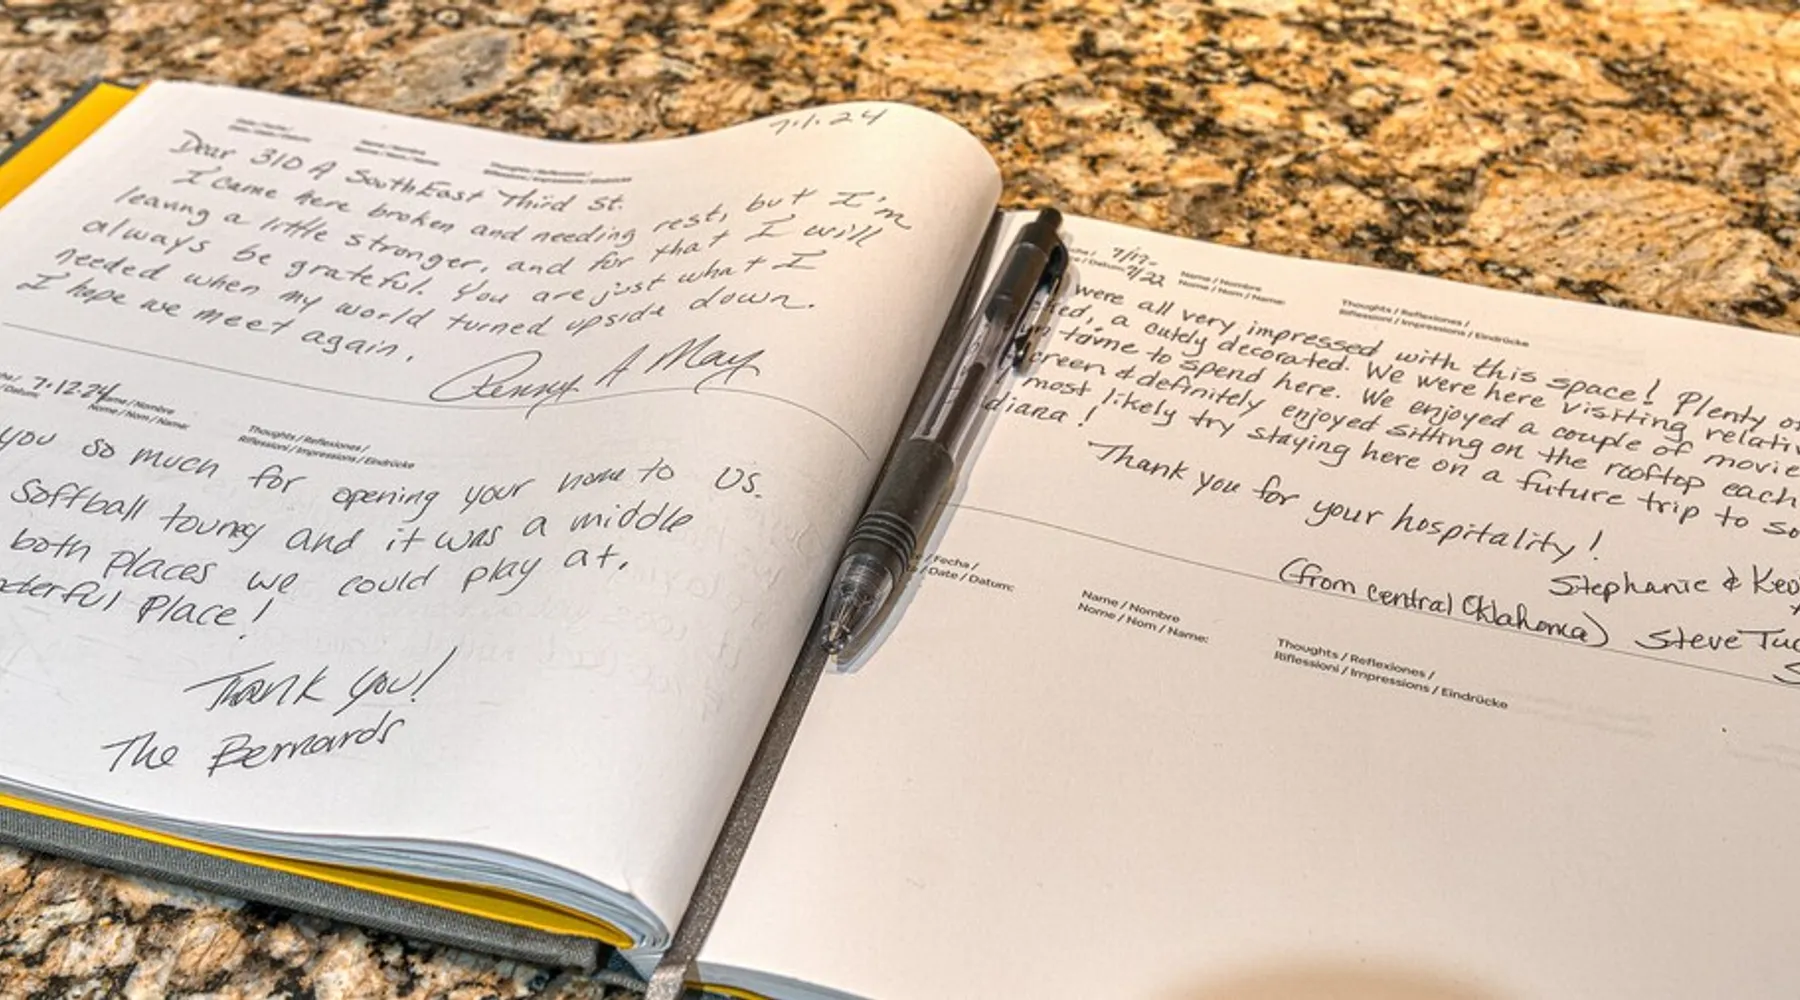 7.1.24
Dear 310 A SouthEast Third St.
I came here broken and needing rest, but I'm
leaving a little stronger, and for that I will
always be grateful. You are just what I
needed when my world turned upside down.
I hope we meet again.
Penny A May
7.12.24
Name / Nombre
Nome / Nom / Name:
Thoughts / Reflexiones /
Riflessioni / Impressions / Eindrücke
you so much for opening your home to us.
Softball tourney and it was a middle
both places we could play at.
Place!
Thank you!
The Bernards
7/17-
/ Datum: 7/22
Name / Nombre
Nome / Nom / Name:
Thoughts / Reflexiones /
Riflessioni / Impressions / Eindrücke
were all very impressed with this space! Plenty
a cutely decorated. We were here visiting
to spend here. We enjoyed a couple of
& definitely enjoyed sitting on the rooftop each
most likely try staying here on a future trip to
Thank you for your hospitality!
Stephanie &
(from central Oklahoma) Steve
/ Fecha /
/ Date / Datum:
Name / Nombre
Nome / Nom / Name:
Thoughts / Reflexiones /
Riflessioni / Impressions / Eindrücke